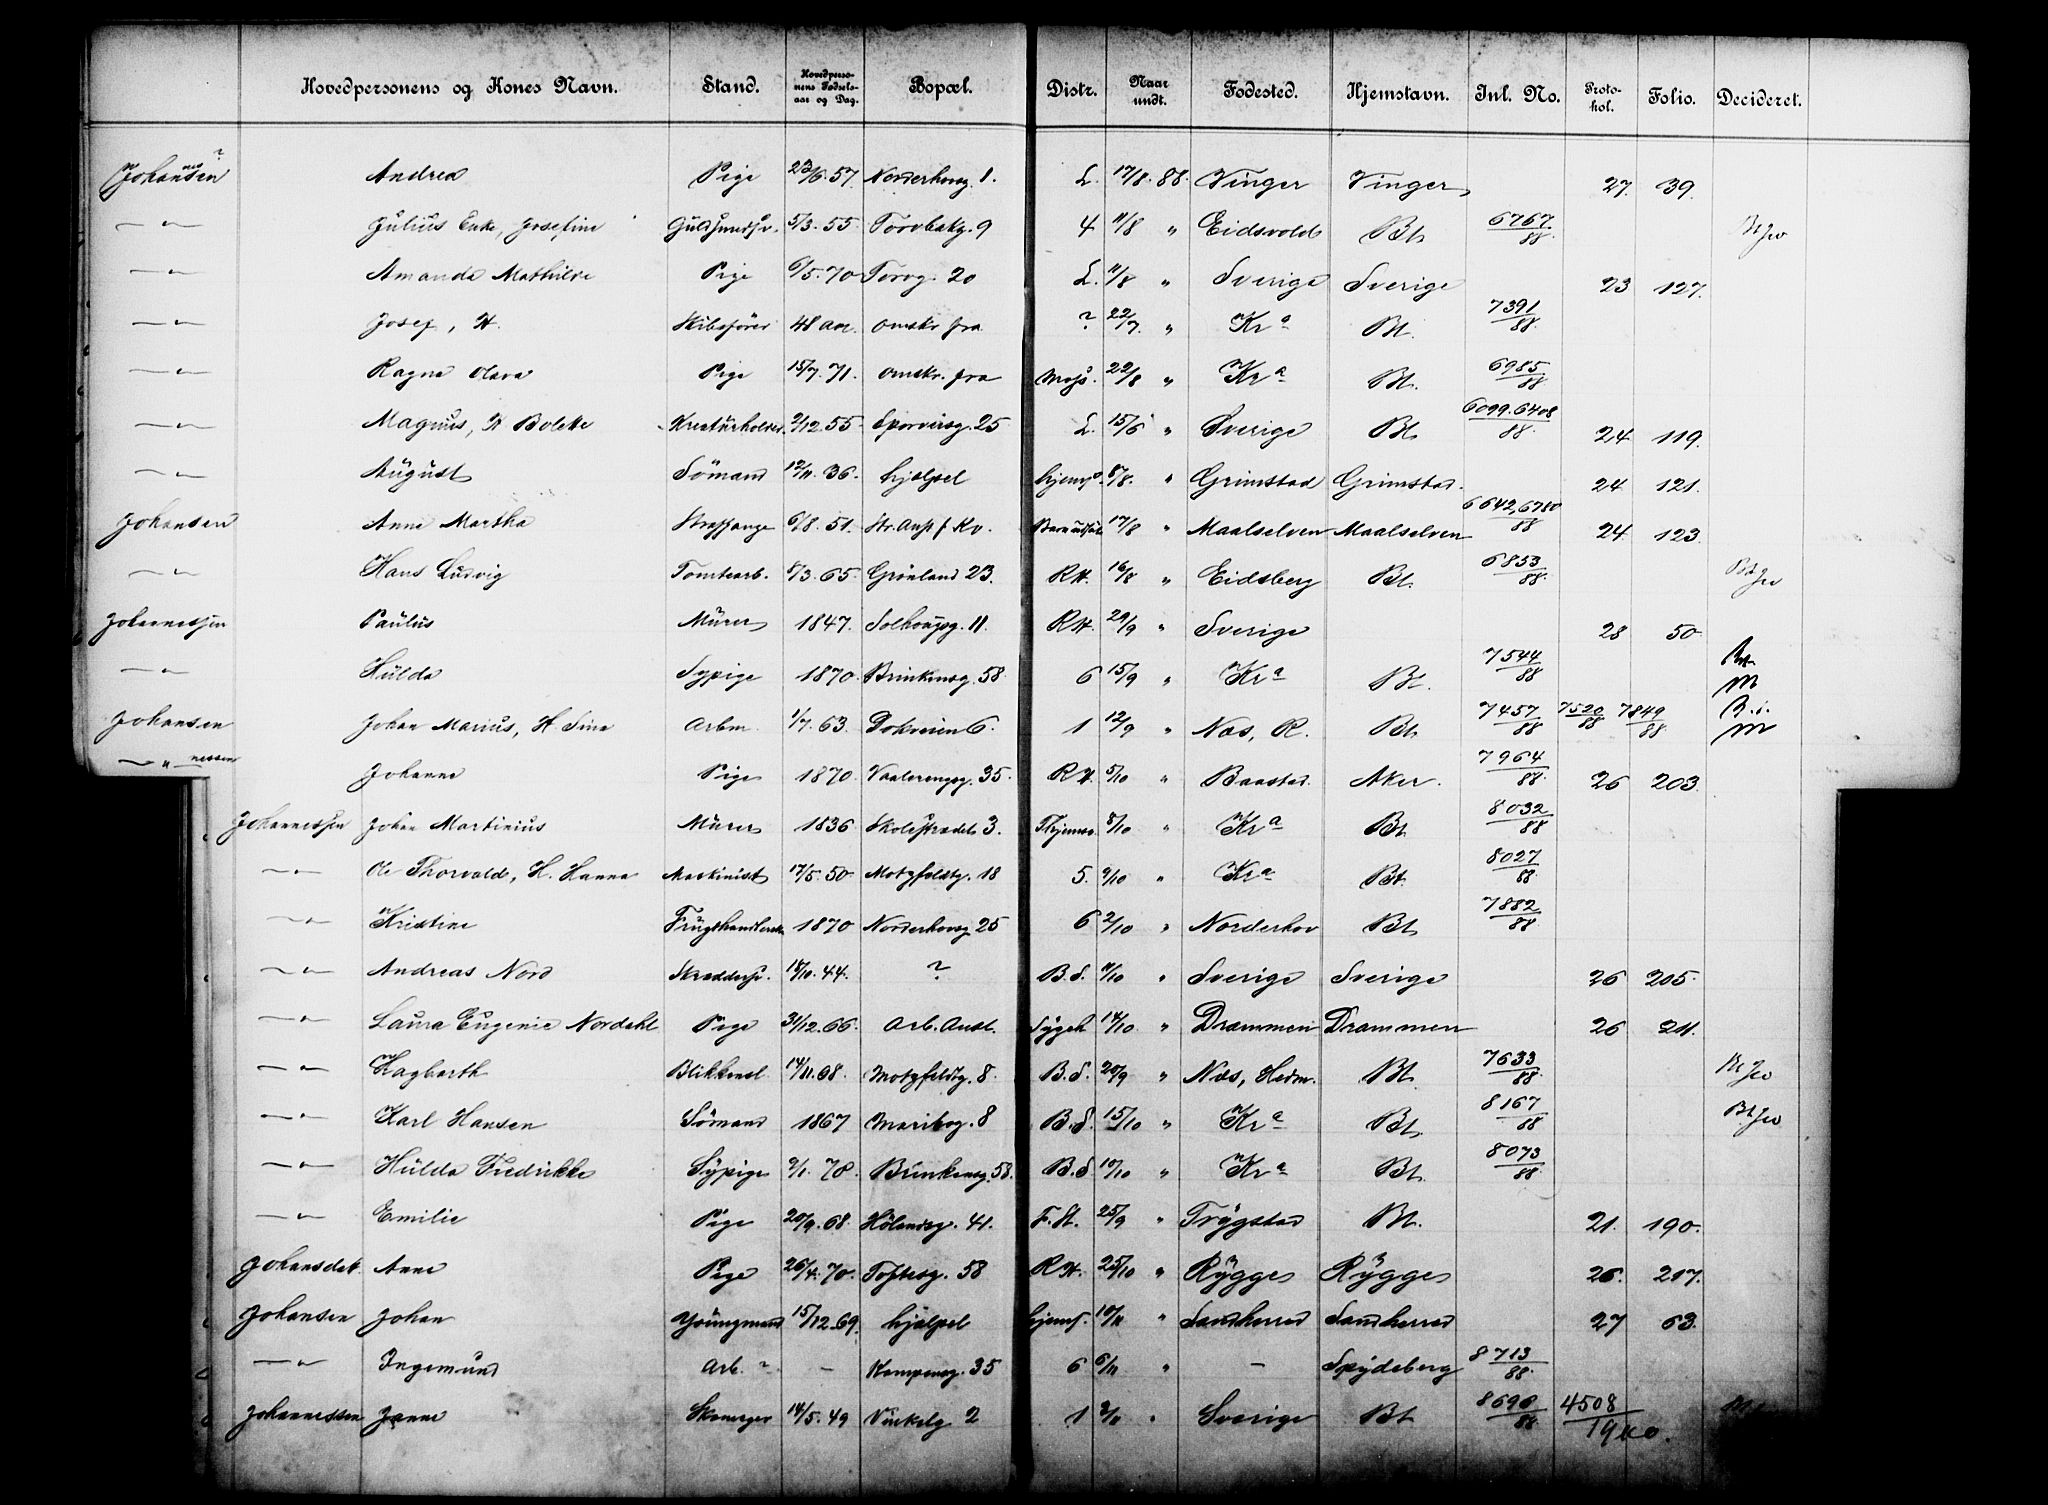 Hovedpersonens og Kones Navn. Stand. Hovedpersonens Fødselsaar og Dag. Bopæl. Distr. Naar undt. Fødested. Hjemstavn. Inl. No. Protokol. Folio. Decideret.
Johannsen ? Andrea Pige 23/6.57. Norderhovg. 1. L. 17/8.88. Vinger Vinger 27. 39.
—"— Julius Enke, Josefine 5/3.55 Torvbakg. 9 4 11/8 " Eidsvold Bt. 6767/88
—"— Amanda Mathilde Pige 6/5.70 Torvg. 20 L. 11/8 " Sverige Sverige 23 127.
—"— Josef, H. Skibsfører 48 Aar omskr. fra ? 22/7. " Kra Bt. 7391/88
—"— Ragna Olava Pige 15/7.71. omskr. fra Moss. 22/8 " Kra Bt. 6985/88
—"— Magnus, H. Bolette 2/12.55 Sporveisg. 25 L. 15/6 " Sverige Bt. 6099.6408/88 24 119.
—"— August Sömand 12/11.36. hjælpsl 8/8. " Grimstad Grimstad. 24 121.
Johansen Anne Martha Straffange 6/8.51. 17/8 " Maalselven Maalselven 6642,6780/88 24. 123.
—"— Hans Ludvig Tomtearb. 8/3.65. Grönland 23. RH. 16/8 " Eidsberg Bt. 6853/88
Johannessen Paulus Murer 1847. Solhougsg. 11. RH. 29/9 " Sverige 28 50
—"— Hulda Sypige 1870. Brinkensg. 58. 6 15/9 " Kra Bt. 7544/88 Bt. M
Johansen Johan Marius, H. Sina Arbm. 1/7.63. Dokveien 6. 1 12/9 " Næs, R. Bt. 7457/88 7520/88 7849/88 M
—"— nessen Johanne Pige 1870. Vaalerengsg. 35. RH. 5/10 " Baastad. Aker. 7964/88 26 203.
Johannessen Johan Martinius Murer 1836 Skolestrædet 3. 8/10 " Kra Bt. 8032/88
—"— Ole Thorvald, H. Hanna Maskinist 17/5.50 Motzfeldtg. 18 5. 9/10 " Kra Bt. 8027/88
—"— Kristine Frugthandlerske 1870 Norderhovg 25 6 2/10 " Norderhov Bt. 7882/88
—"— Andreas Nord Skræddersv. 18/10.44. ? B.S. 11/10 " Sverige Sverige 26 205.
—"— Laura Eugenie Nordahl Pige 31/12.66. Arb. Anst. Sygeh 14/10. " Drammen Drammen 26 211.
—"— Hagbarth Blikkensl. 14/11.68. Motzfeldtg. 8. B.S. 20/9 " Næs, Hedm. Bt. 7633/88
—"— Karl Hansen Sömand 1867 Maribog. 8 B.S. 15/10 " Kra Bt. 8167/88
—"— Hulda Fredrikke Sypige 9/1.70. Brinkensg. 58. B.S 10/10 " Kra Bt. 8073/88
—"— Emilie Pige 20/9.68. Hölandsg. 41. F.H. 25/9 " Trygstad Bt. 21. 190.
Johansdat. Anne Pige 26/4.70. Toftesg. 58 RH. 25/10 " Rygge Rygge 26. 217.
Johansen Johan Youngmand 15/12.69. hjælpsl hjemsf. 10/11 " Sandherred Sandherred 27 63.
—"— Ingemund Arb. ? — Kampensg. 35 6 6/11 " — Spydeberg 8713/88.
Johannessen Janne Skomager 14/5.49 Vinkelg 2 1 " Sverige Bt 8690/88 4508/1900.